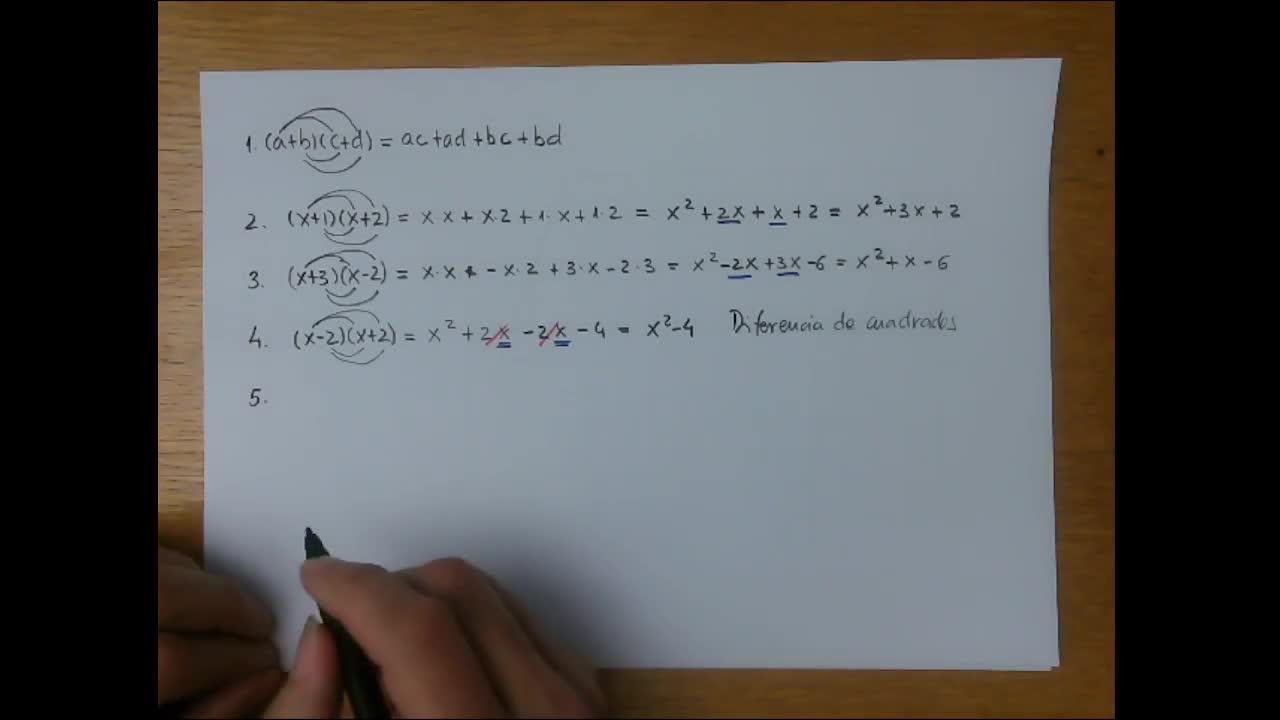 1. (a+b)(c+d) = ac+ad+bc+bd
2. (x+1)(x+2) = x·x + x·2 + 1·x + 1·2 = x²+2x+x+2 = x²+3x+2
3. (x+3)(x-2) = x·x - x·2 + 3·x - 2·3 = x²-2x+3x-6 = x²+x-6
4. (x-2)(x+2) = x²+2x-2x-4 = x²-4 Diferencia de cuadrados
5.